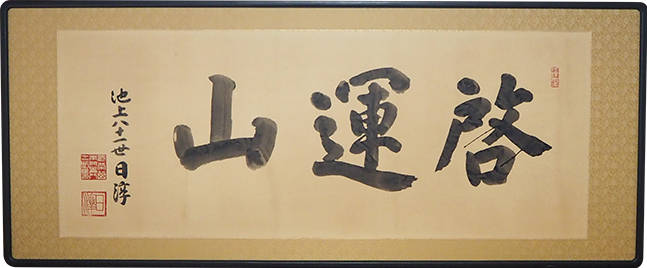 啓運山
池上八十一世日淳